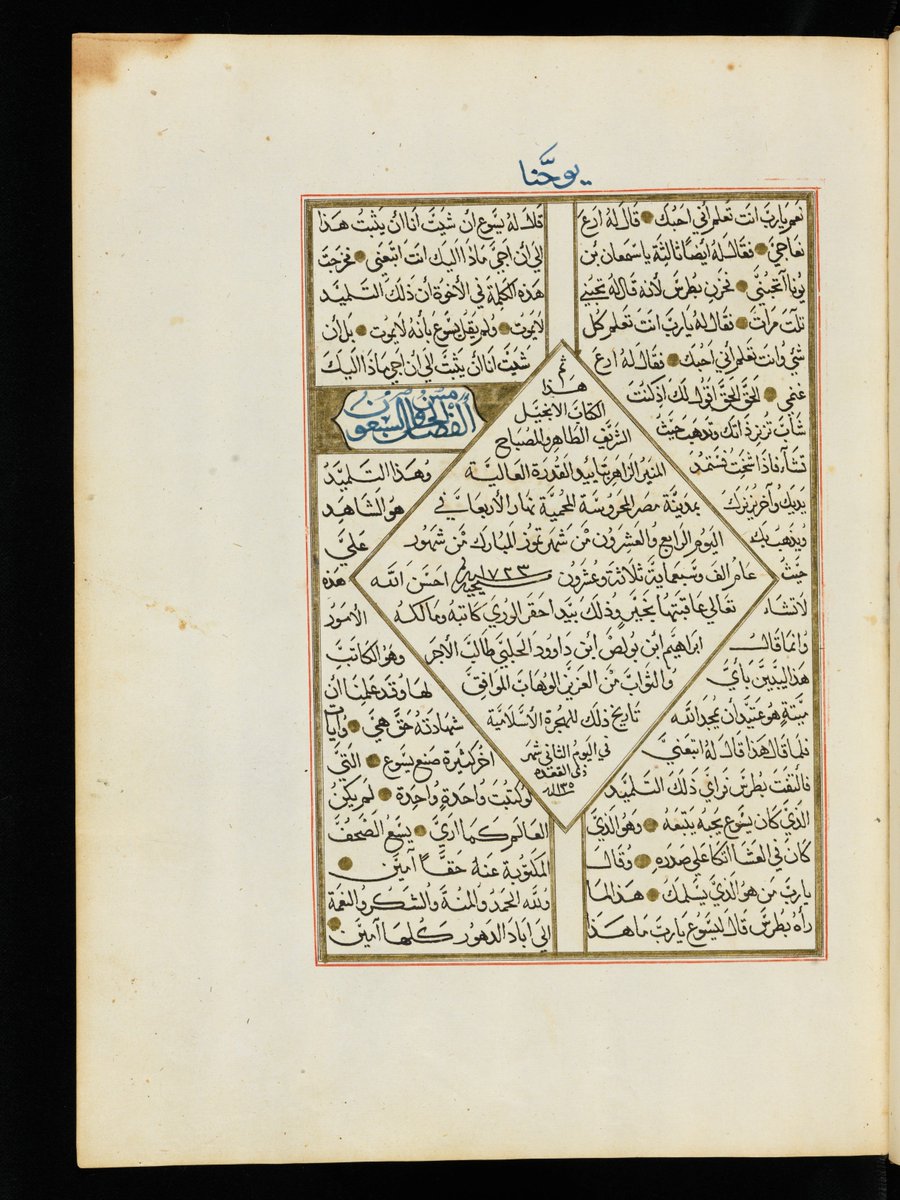 يوحنا
نعم يارب انت تعلم أني احبك قال له ارع
نعاجي فقال له ايضًا ثالثة ياسمعان بن
يونا اتحبني فحزن بطرس لأنه قال له تحبني
ثلاث مرات فقال له يارب انت تعلم كل
شي وانت تعلم أني احبك فقال له ارع
غنمي الحق الحق اقول لك اذ كنت
شاب تزنر ذاتك وتذهب حيث
تشآء فاذا شخت فستمد
يديك وآخر يزنرك
ويذهب بك
حيث
لاتشاء
وانما قال
هذا ليبين بأي
ميتة هو عتيد أن يمجد الله
فلما قال هذا قال له اتبعني
فالتفت بطرس فراي ذلك التلميذ
الذي كان يسوع يحبه يتبعه وهو الذي
كان في العشا اتكا علي صدره وقال
يارب من هو الذي يسلمك هذا لما
رأه بطرس قال ليسوع يارب ما هذا
قال له يسوع ان شيت انا ان يثبت هذا
الي أن اجي ماذا اليك انت اتبعني فخرجت
هذه الكلمة في الأخوة أن ذلك التلميذ
لايموت ولم يقل يسوع بأنه لايموت بل أن
شيت انا أن يثبت الي أن اجي ماذا اليك
الفصل الخامس والسبعون
وهذا التلميذ
هو الشاهد
علي
هذه
الأمور
وهو الكاتب
لها وقد علمنا أن
شهادته حق هي وآيات
اخر كثيرة صنع يسوع التي
لو كتبت واحدة واحدة لم يكن
العالم كما اري يسع الصحف
المكتوبة عنه حقًا آمين
ولله الحمد والمنة والشكر والنعمة
الي اباد الدهور كلها آمين
تم
هذا
الكتاب الانجيل
الشريف الطاهر والمصباح
المنير الزاهر بتاييد القدرة العالية
بمدينة مصر المحروسة المحمية نهار الأربعا في
اليوم الرابع والعشرون من شهر تموز المبارك من شهور
عام الف وسبعماية ثلاثة وعشرون ١٧٢٣ مسيحيه احسن الله
تعالي عاقبتها بخير وذلك بيد احقر الوري كاتبه ومالكه
ابراهيم ابن بولص ابن داوود الحلبي طالب الأجر
والثواب من العزيز الوهاب الموافق
تاريخ ذلك للهجرة الأسلامية
في اليوم الثاني شهر
ذي القعده
١١٣٥